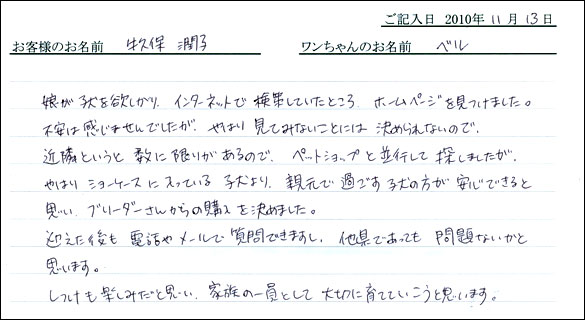 ご記入日 2010年 11月 13日
お客様のお名前 牧保 潤子 ワンちゃんのお名前 ベル
娘が子犬を欲しがり、インターネットで検索していたところ ホームページを見つけました。
不安は感じませんでしたが、やはり見てみないことには決められないので、
近隣というと数に限りがあるので、ペットショップと並行して探しましたが、
やはりショーケースに入っている子犬より、親元で過ごす子犬の方が安心できると
思い、ブリーダーさんからの購入を決めました。
迎えた後も電話やメールで質問できますし、他県であっても問題ないかと
思います。
しつけも楽しみだと思い、家族の一員として大切に育てていこうと思います。